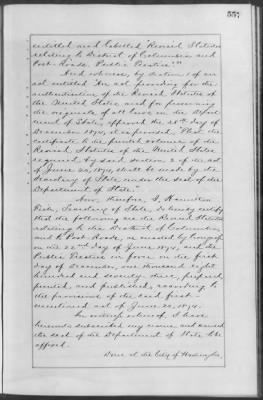 557
entitled and labelled "Revised Statutes
relating to District of Columbia and
Post Roads. Public Treaties."
And whereas, by section 1 of an
act entitled "An act providing for the
authentication of the Revised Statutes of
the United States, and for preserving
the originals of all laws in the Depart
ment of State," approved the 28th day of
December 1874, it is provided, "That the
certificate to the printed volumes of the
Revised Statutes of the United States
required by said section 2 of the act
of June 20, 1874, shall be made by the
Secretary of State, under the seal of the
Department of State."
Now, therefore, I, Hamilton
Fish, Secretary of State, do hereby certify
that the following are the Revised Statutes
relating to the District of Columbia,
and to Post Roads, as enacted by Congress
on the 22nd day of June 1874, and the
Public Treaties in force on the first
day of December, one thousand eight
hundred and seventy-three, prepared,
printed, and published, according to
the provisions of the said first
mentioned act of June 20, 1874.
In witness whereof I have
hereunto subscribed my name and caused
the seal of the Department of State to be
affixed.
Done at the City of Washington,